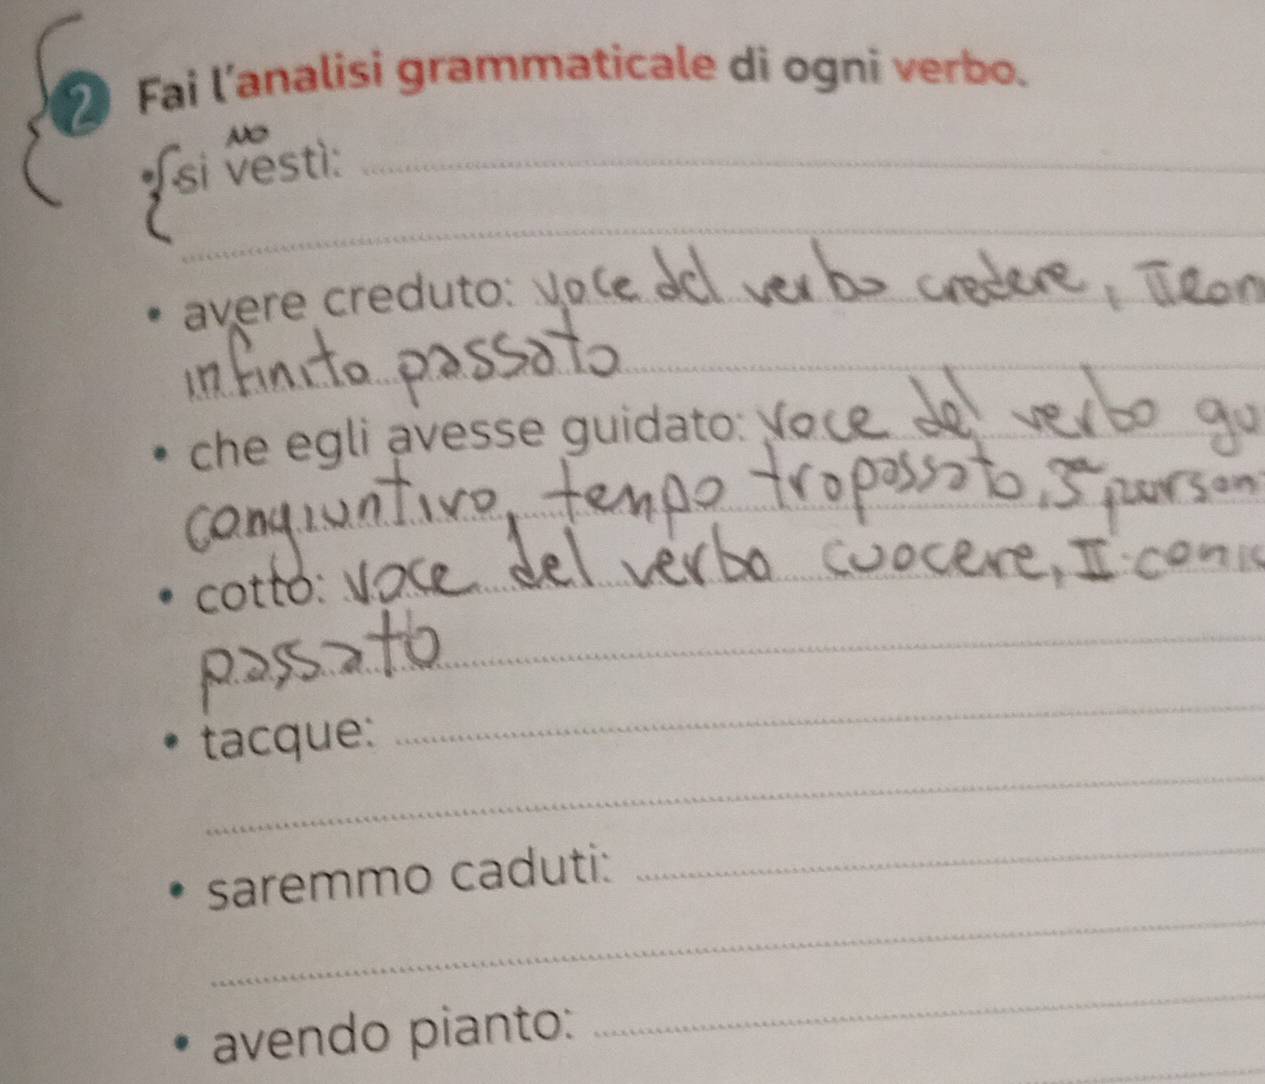 2 Fai l'analisi grammaticale di ogni verbo.
NO
• si vestì:
• avere creduto: voce del verbo credere, II con
infinito passato
• che egli avesse guidato: voce del verbo gu
congiuntivo, tempo tropassato, 3ª person
• cotto: voce del verbo cuocere, II coni
passato
• tacque:
• saremmo caduti:
• avendo pianto: